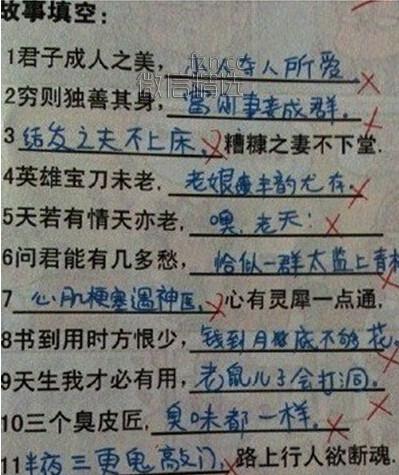 故事填空：
1君子成人之美，小人夺人所爱 ×
2穷则独善其身，富则妻妾成群。 ×
3 结发之夫不上床，× 糟糠之妻不下堂.
4英雄宝刀未老，老娘丰韵尤存。 ×
5天若有情天亦老，噢，老天！ ×
6问君能有几多愁，恰似一群太监上青 ×
7 心肌梗塞遇神医，× 心有灵犀一点通.
8书到用时方恨少，钱到月底不够花。 ×
9天生我才必有用，老鼠儿子会打洞。 ×
10三个臭皮匠，臭味都一样。 ×
11半夜三更鬼敲门，路上行人欲断魂.
微信精选